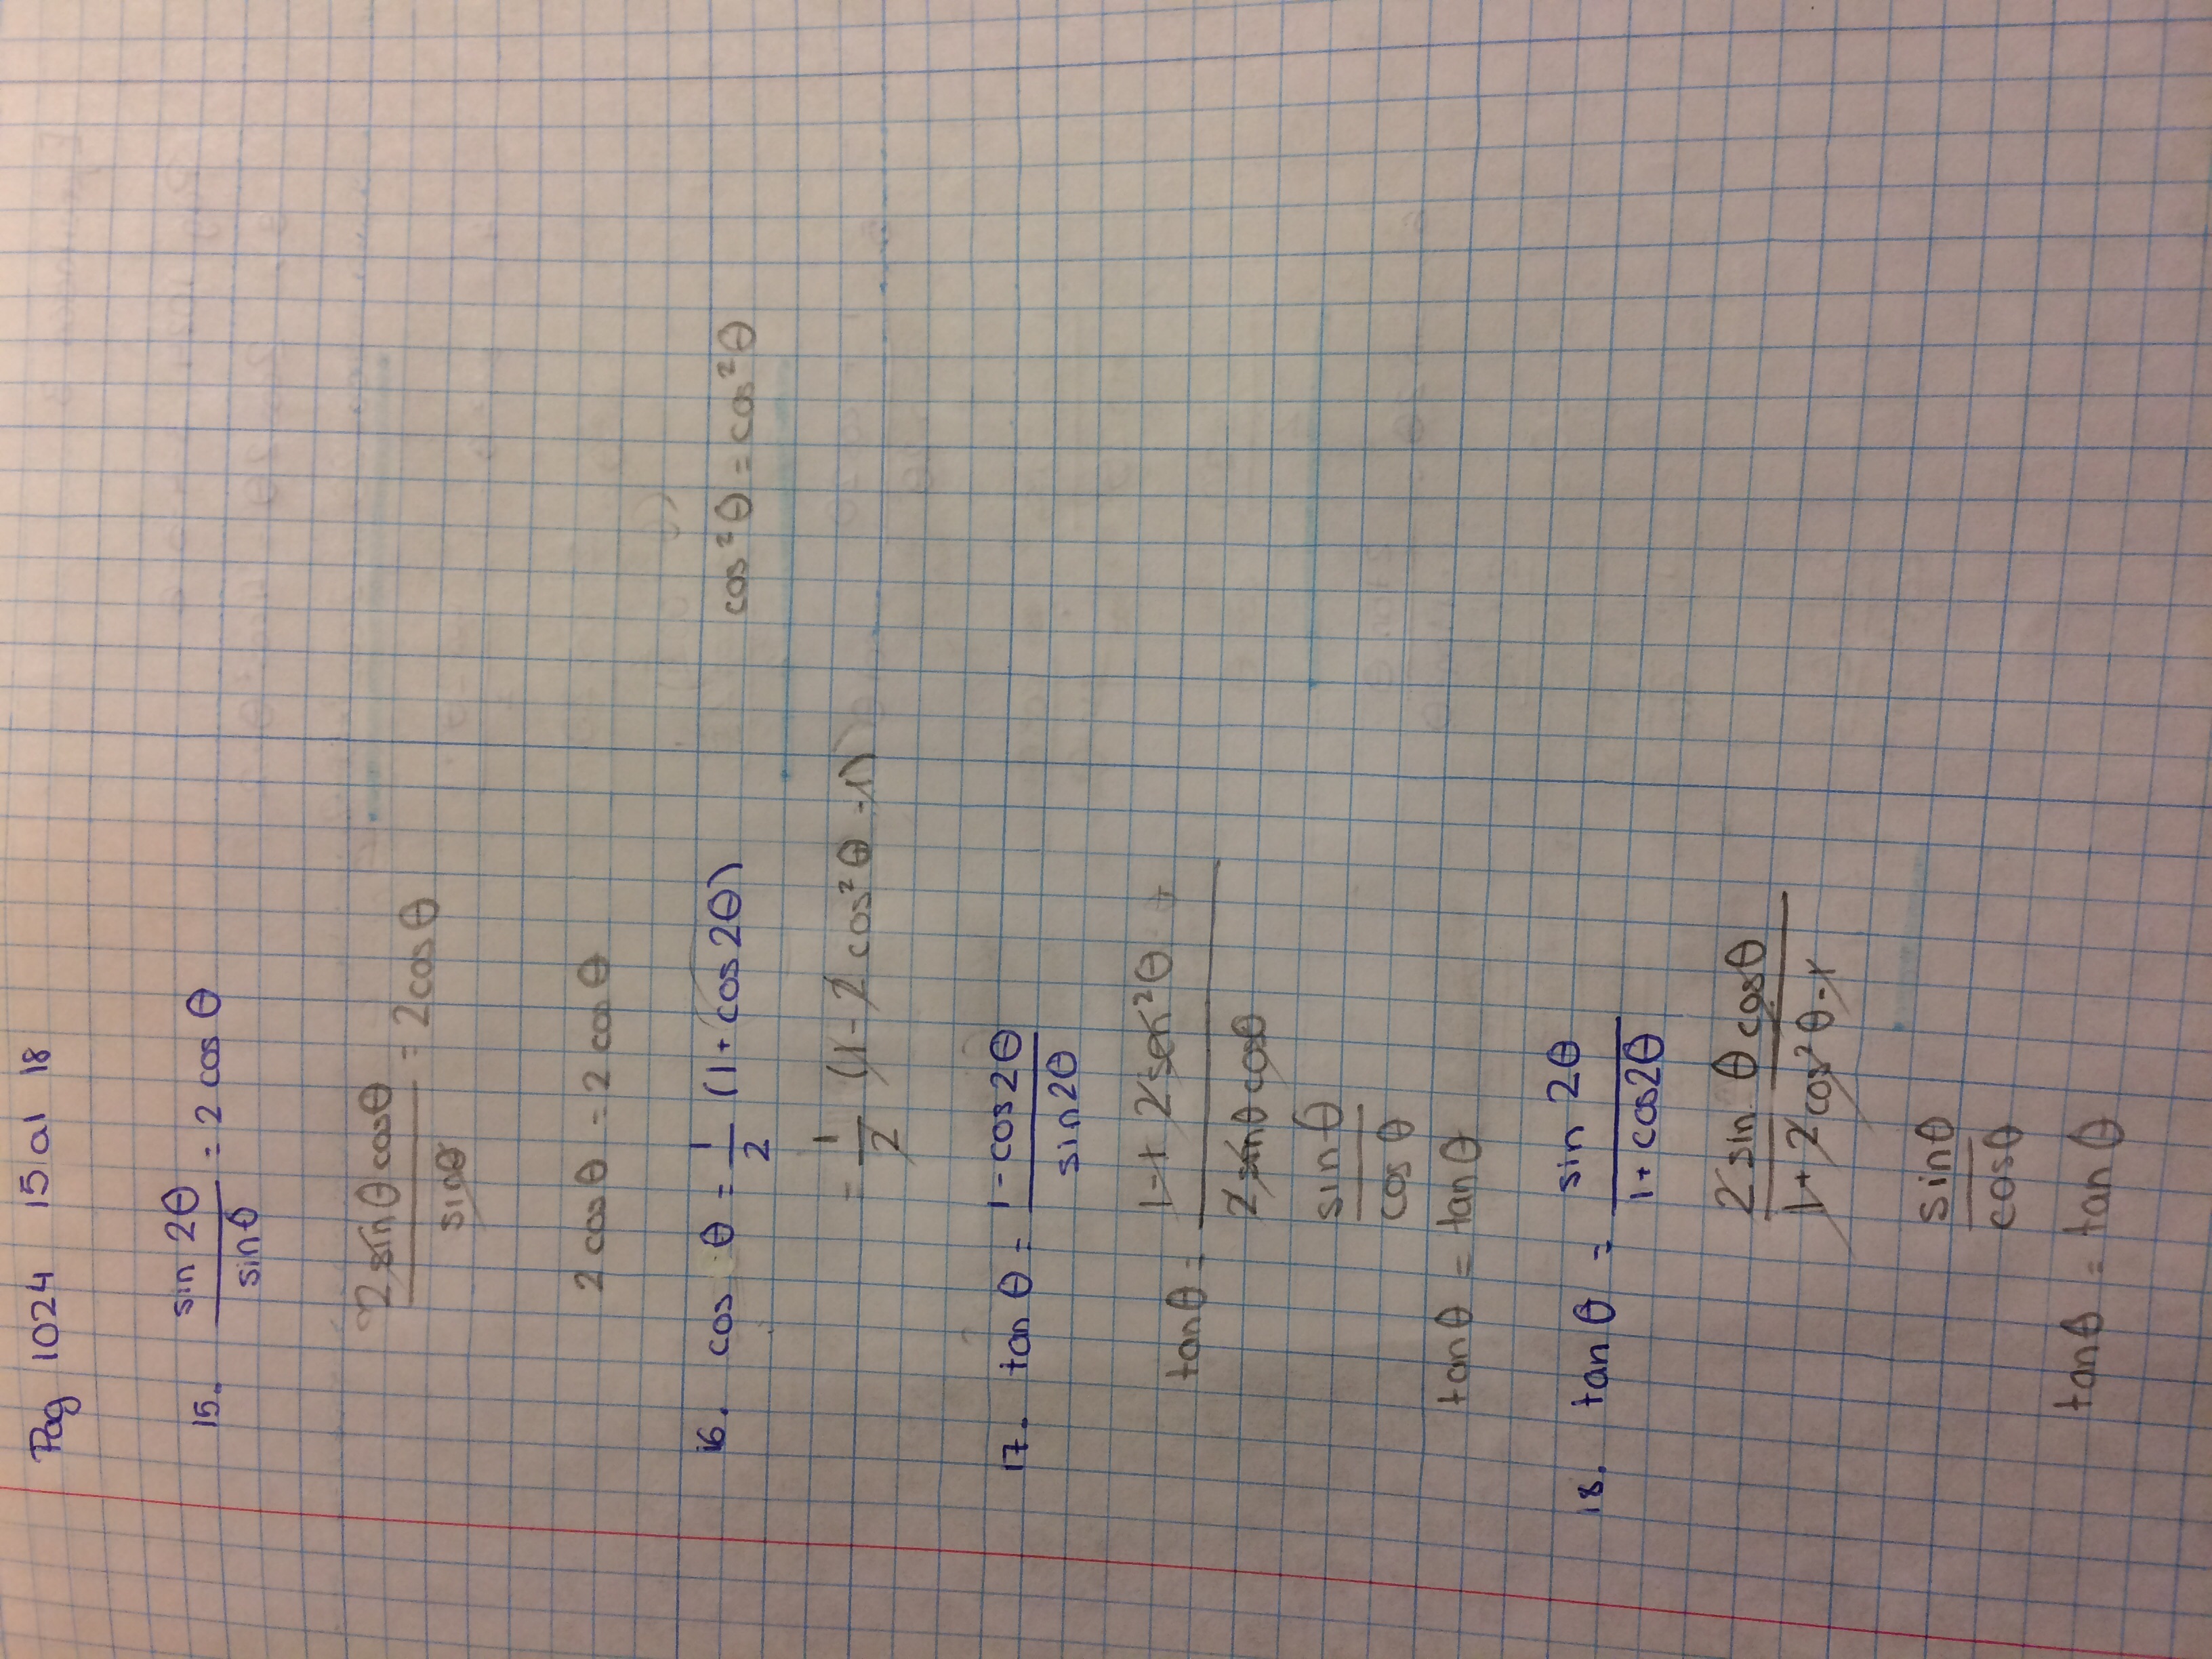 Pag 1024 15 al 18
15. sin 2θ / sin θ = 2 cos θ
2 sin θ cos θ / sin θ = 2 cos θ
2 cos θ = 2 cos θ
16. cos θ = 1/2 (1 + cos 2θ) cos² θ = cos² θ
= 1/2 (1 - 2 cos² θ - 1)
17. tan θ = 1 - cos 2θ / sin 2θ
tan θ = 1 - 1 2 sen² θ / 2 sin θ cos θ
sin θ / cos θ
tan θ = tan θ
18. tan θ = sin 2θ / 1 + cos 2θ
2 sin θ cos θ / 1 + 2 cos² θ - 1
sin θ / cos θ
tan θ = tan θ